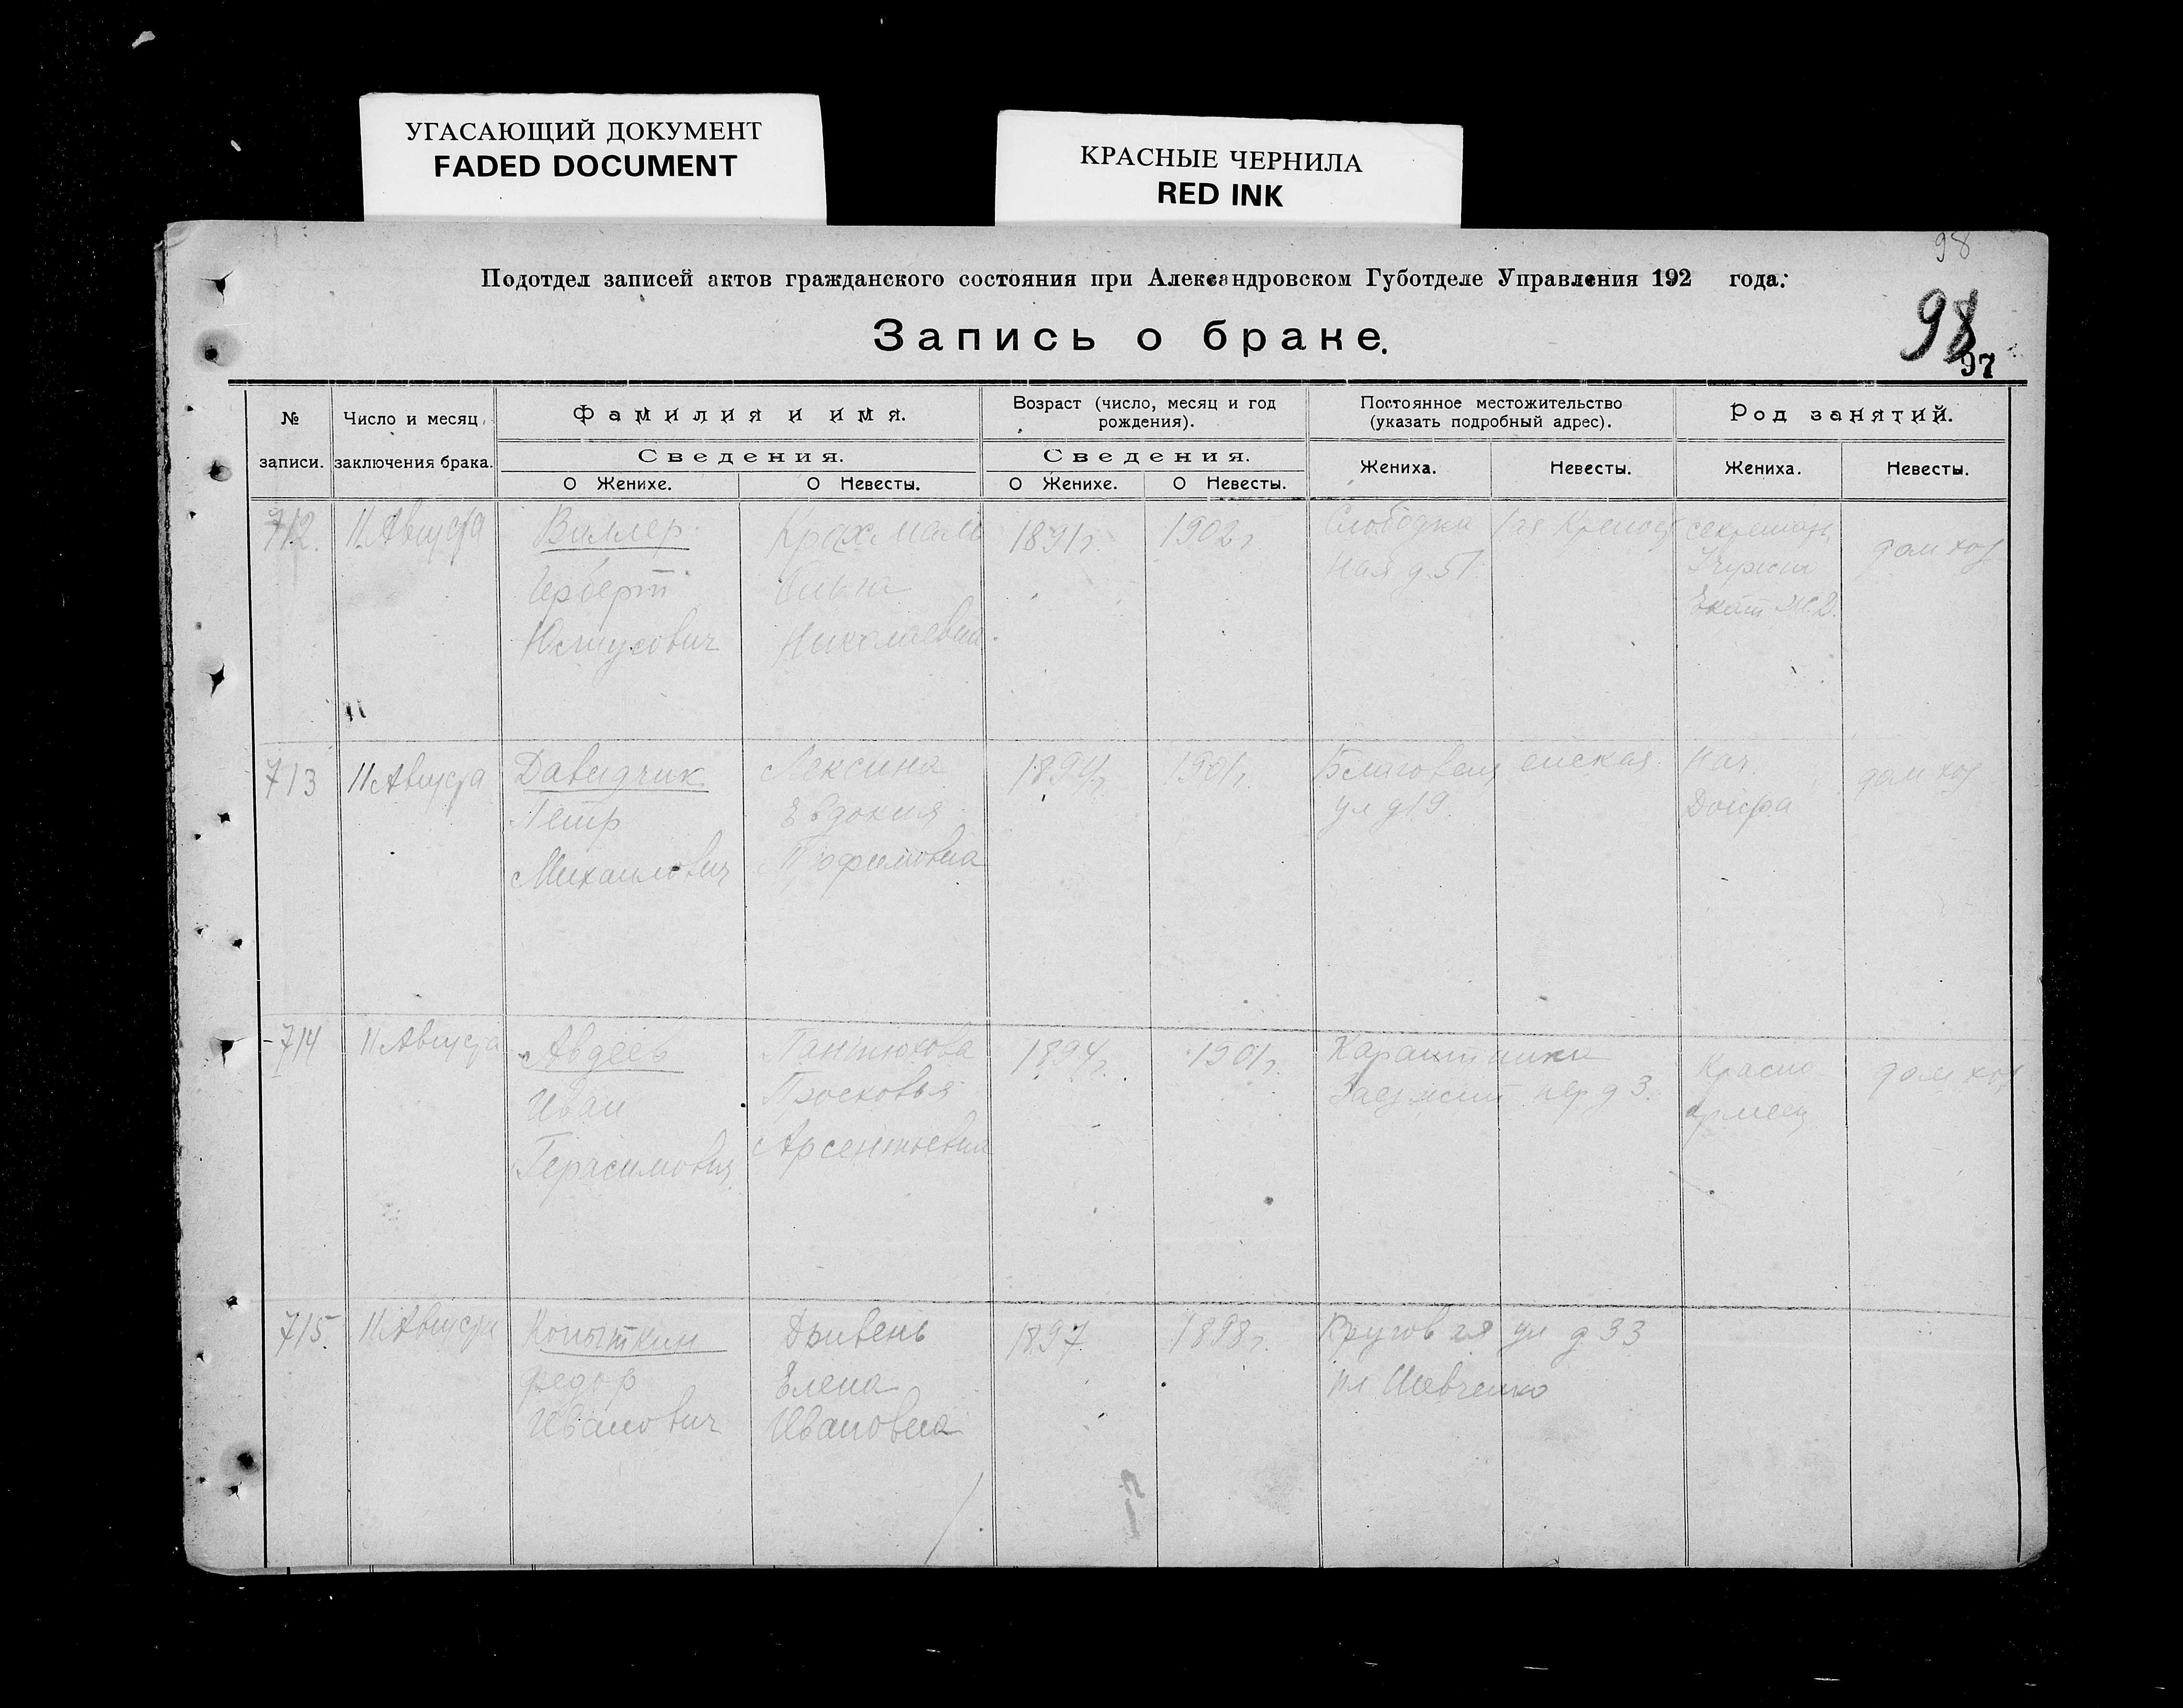 УГАСАЮЩИЙ ДОКУМЕНТ
FADED DOCUMENT
КРАСНЫЕ ЧЕРНИЛА
RED INK
98
Подотдел записей актов гражданского состояния при Александровском Губотделе Управления 192 года.
98
Запись о браке.
97
№ записи.
Число и месяц заключения брака.
Фамилия и имя.
Сведения.
О Женихе.
О Невесты.
Возраст (число, месяц и год
рождения).
Сведения.
О Женихе.
О Невесты.
Постоянное местожительство
(указать подробный адрес).
Жениха.
Невесты.
Род занятий.
Жениха.
Невесты.
712.
11 Августа
Виллер
Герберт
Юстусович
Крахмаль
Николаевна
1891 г.
1902 г
Слободка
ная д 51
секретарь
Екат Ж.Д.
дом хоз
713
11 Августа
Давидчик
Петр
Михаилович
Лексина
Евдокия
1894 г.
1901 г.
Благовещ енская
ул д 19.
Нач
дом хоз
714
11 Августа
Авдеев
Иван
Герасимович
Пантюхова
Просковья
Арсентьевна
1894 г.
1901 г.
пер д 3.
Красно
армеец
дом хоз
715.
11 Августа
Копыткин
Федор
Иванович
Дривень
Елена
Ивановна
1897
1898 г.
Круговая ул д 33
Шевченко